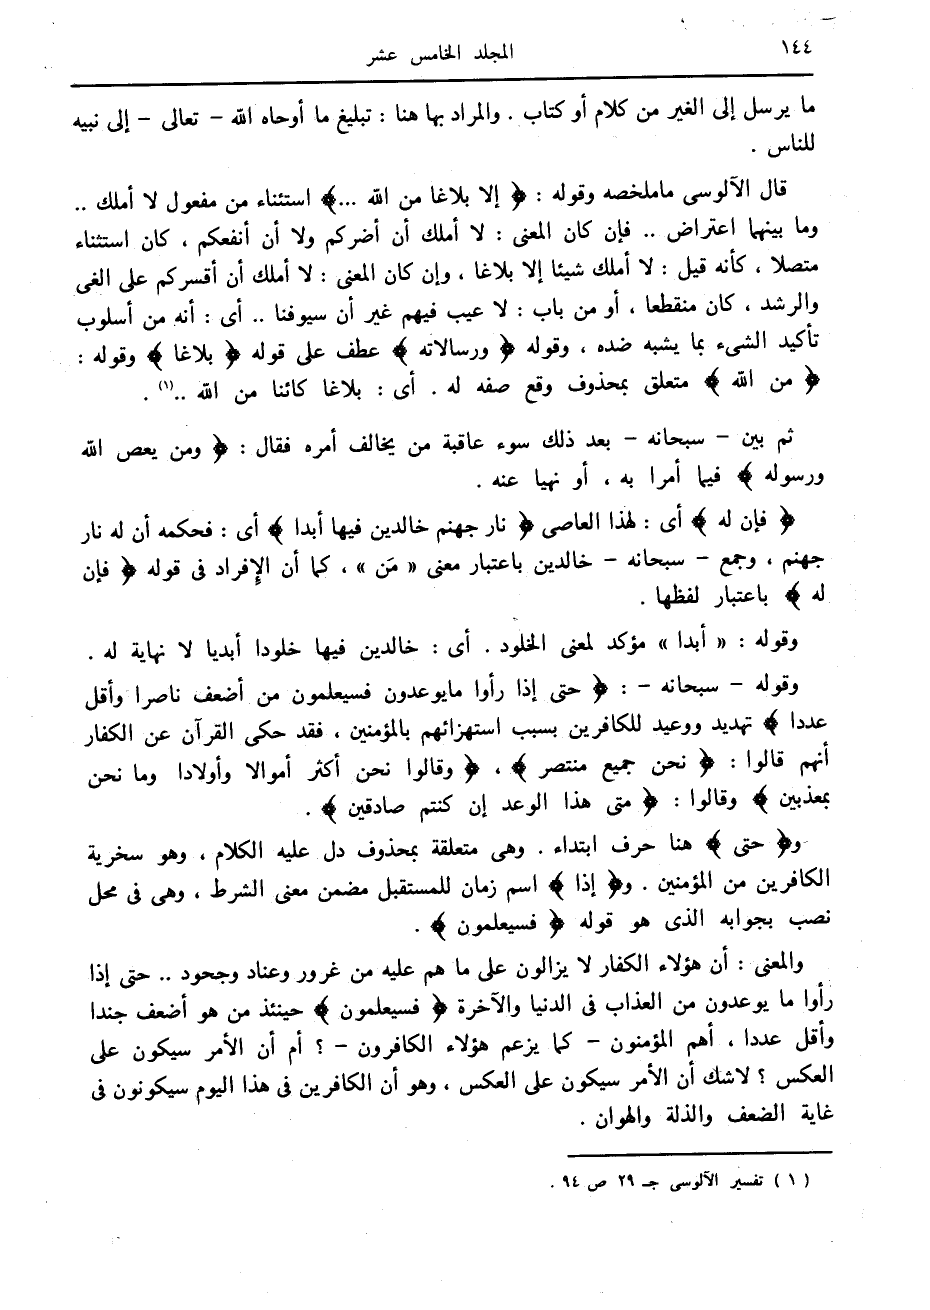 ١٤٤
المجلد الخامس عشر
ما يرسل إلى الغير من كلام أو كتاب . والمراد بها هنا : تبليغ ما أوحاه الله – تعالى – إلى نبيه
للناس .
قال الآلوسى ماملخصه وقوله : ﴿ إلا بلاغا من الله ...﴾ استثناء من مفعول لا أملك ..
وما بينهما اعتراض .. فإن كان المعنى : لا أملك أن أضركم ولا أن أنفعكم ، كان استثناء
متصلا ، كأنه قيل : لا أملك شيئا إلا بلاغا ، وإن كان المعنى : لا أملك أن أقسركم على الغى
والرشد ، كان منقطعا ، أو من باب : لا عيب فيهم غير أن سيوفنا .. أى : أنه من أسلوب
تأكيد الشىء بما يشبه ضده ، وقوله ﴿ ورسالاته ﴾ عطف على قوله ﴿ بلاغا ﴾ وقوله :
﴿ من الله ﴾ متعلق بمحذوف وقع صفه له . أى : بلاغا كائنا من الله ..(١) .
ثم بين – سبحانه – بعد ذلك سوء عاقبة من يخالف أمره فقال : ﴿ ومن يعص الله
ورسوله ﴾ فيما أمرا به ، أو نهيا عنه .
﴿ فإن له ﴾ أى : لهذا العاصى ﴿ نار جهنم خالدين فيها أبدا ﴾ أى : فحكمه أن له نار
جهنم ، وجمع – سبحانه – خالدين باعتبار معنى « مَن » ، كما أن الإفراد فى قوله ﴿ فإن
له ﴾ باعتبار لفظها .
وقوله : « أبدا » مؤكد لمعنى الخلود . أى : خالدين فيها خلودا أبديا لا نهاية له .
وقوله – سبحانه – : ﴿ حتى إذا رأوا مايوعدون فسيعلمون من أضعف ناصرا وأقل
عددا ﴾ تهديد ووعيد للكافرين بسبب استهزائهم بالمؤمنين ، فقد حكى القرآن عن الكفار
أنهم قالوا : ﴿ نحن جميع منتصر ﴾ ، ﴿ وقالوا نحن أكثر أموالا وأولادا وما نحن
بمعذبين ﴾ وقالوا : ﴿ متى هذا الوعد إن كنتم صادقين ﴾ .
و﴿ حتى ﴾ هنا حرف ابتداء . وهى متعلقة بمحذوف دل عليه الكلام ، وهو سخرية
الكافرين من المؤمنين . و﴿ إذا ﴾ اسم زمان للمستقبل مضمن معنى الشرط ، وهى فى محل
نصب بجوابه الذى هو قوله ﴿ فسيعلمون ﴾ .
والمعنى : أن هؤلاء الكفار لا يزالون على ما هم عليه من غرور وعناد وجحود .. حتى إذا
رأوا ما يوعدون من العذاب فى الدنيا والآخرة ﴿ فسيعلمون ﴾ حينئذ من هو أضعف جندا
وأقل عددا ، أهم المؤمنون – كما يزعم هؤلاء الكافرون – ؟ أم أن الأمر سيكون على
العكس ؟ لاشك أن الأمر سيكون على العكس ، وهو أن الكافرين فى هذا اليوم سيكونون فى
غاية الضعف والذلة والهوان .
( ١ ) تفسير الآلوسى جـ ٢٩ ص ٩٤ .